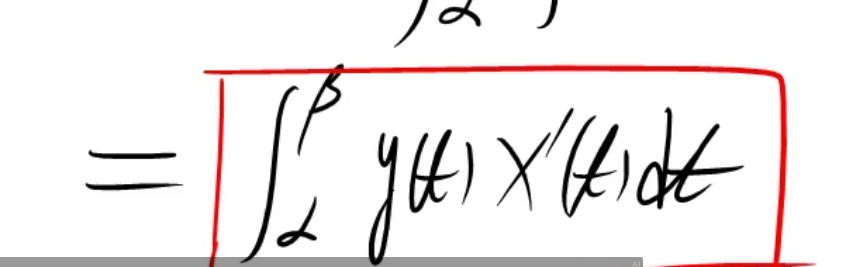 = ∫_α^β y(t) x'(t) dt